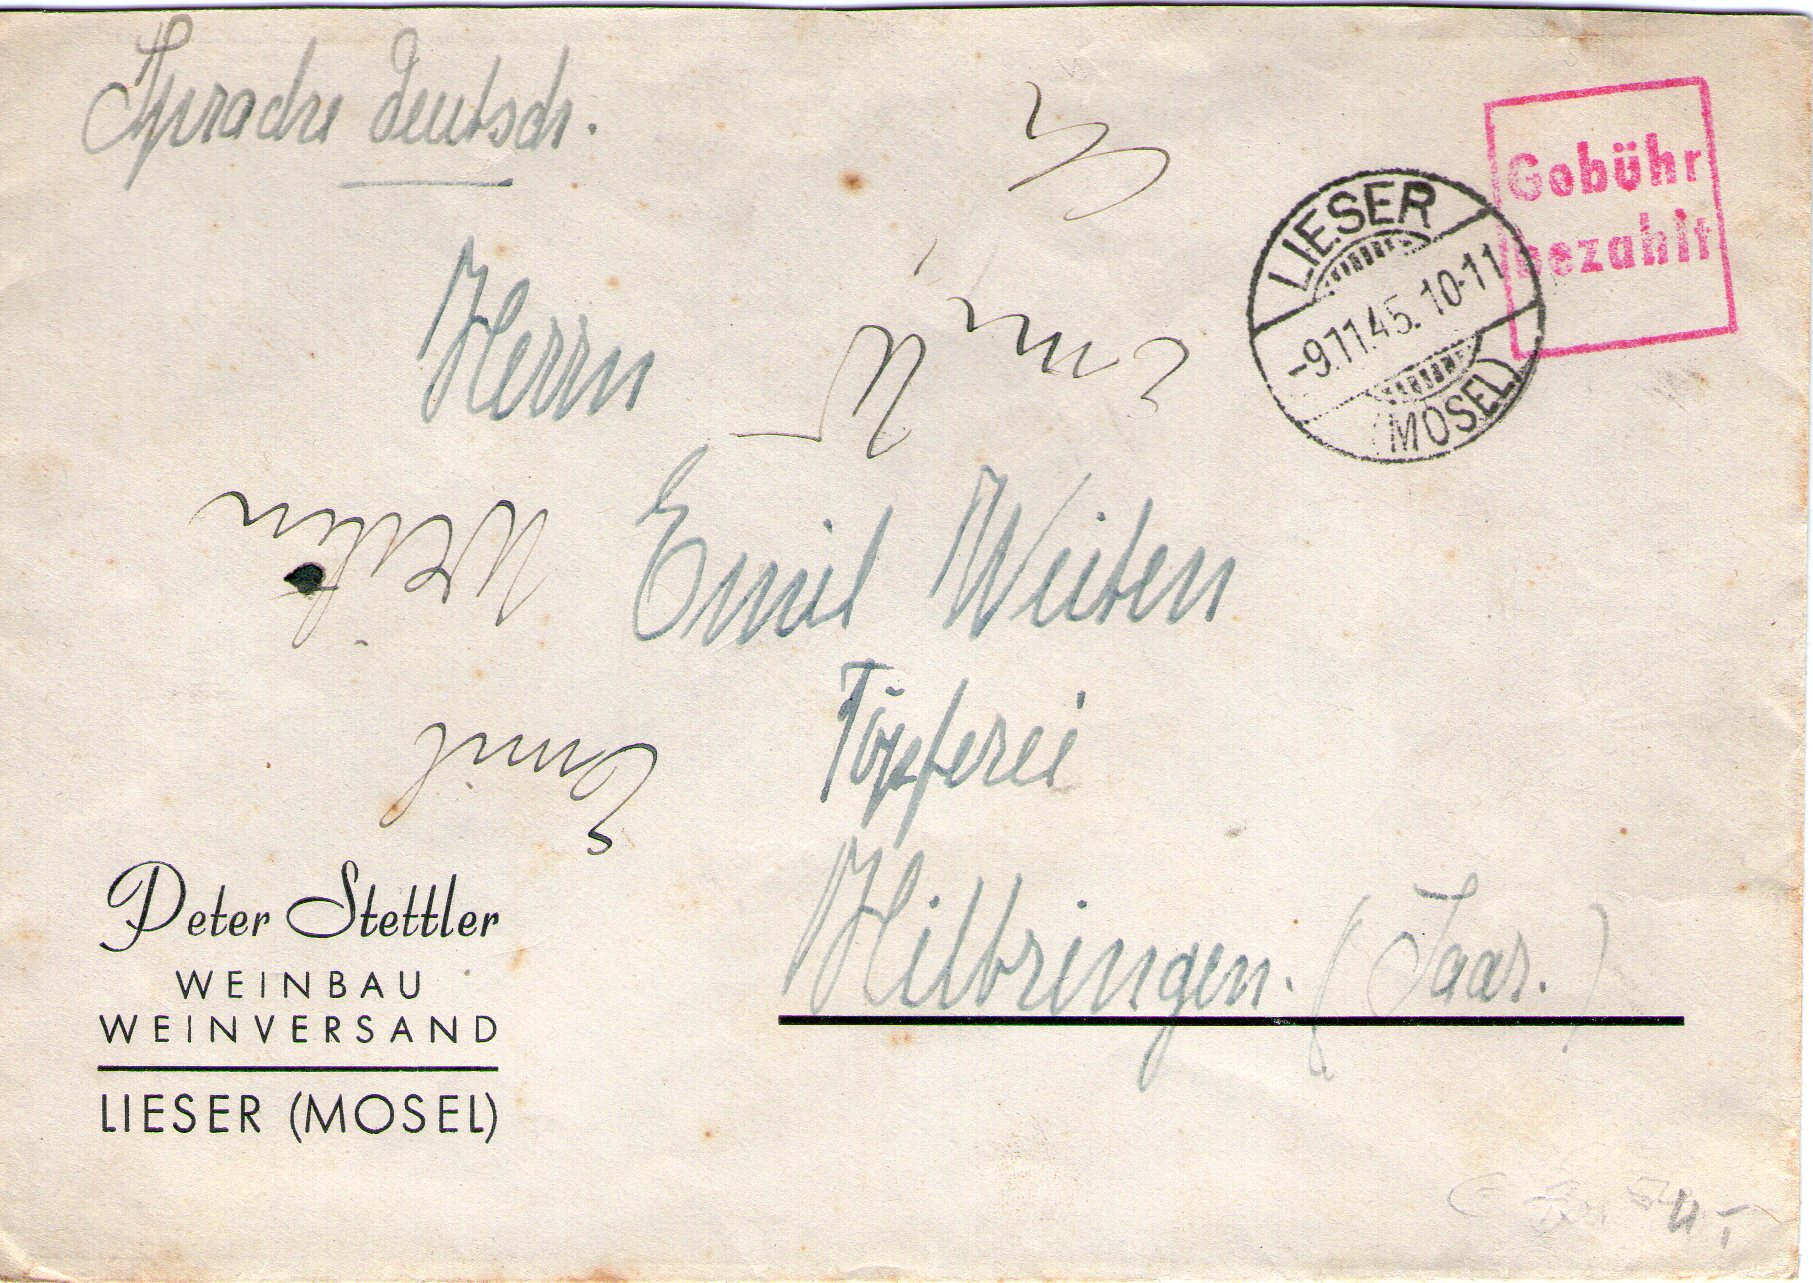 Sprache deutsch.
Gebühr
bezahlt
LIESER
-9.11.45. 10-11
(MOSEL)
Herrn
Emil Weiten
Töpferei
Hilbringen. (Saar.)
Weiten
Emil
Peter Stettler
WEINBAU
WEINVERSAND
LIESER (MOSEL)